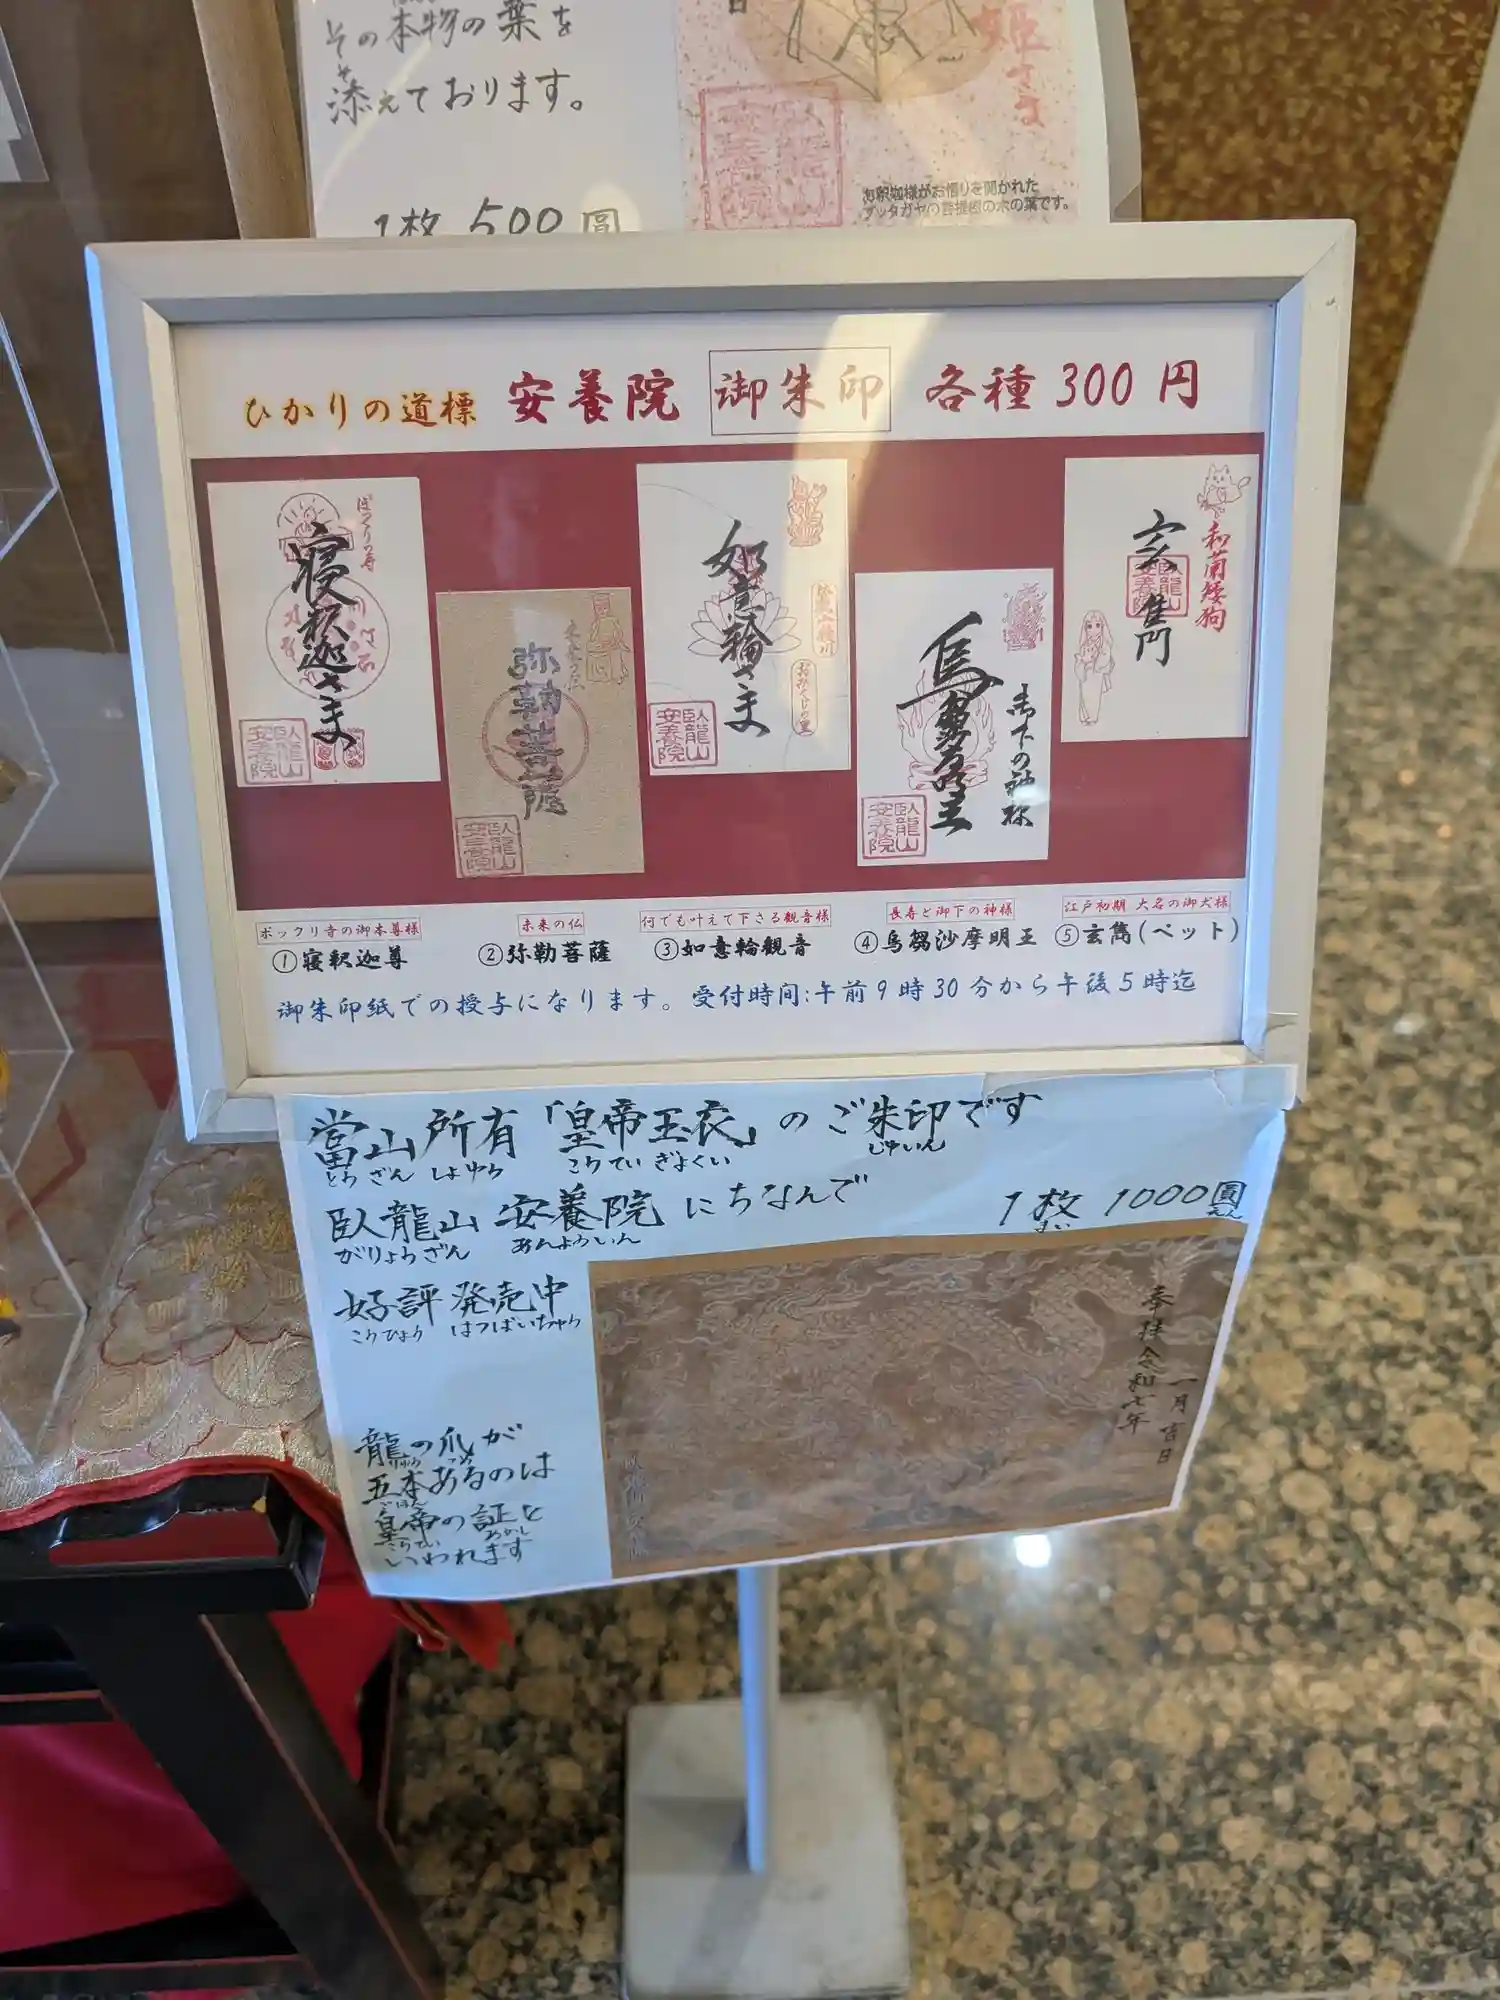 その本物の葉を
添えております。
1枚 500圓
姫さま
お釈迦様がお悟りを開かれた
ブッタガヤの菩提樹の木の葉です。
ひかりの道標 安養院 御朱印 各種300円
ぽっくり寺
寝釈迦さま
臥龍山
安養院
弥勒菩薩
臥龍山
安養院
如意輪さま
臥龍山
安養院
烏芻沙摩明王
御下の神様
臥龍山
安養院
和蘭矮狗
玄雋
臥龍山
安養院
ポックリ寺の御本尊様
①寝釈迦尊
未来の仏
②弥勒菩薩
何でも叶えて下さる観音様
③如意輪観音
長寿と御下の神様
④烏芻沙摩明王
江戸初期 大名の御犬様
⑤玄雋(ペット)
御朱印紙での授与になります。受付時間:午前9時30分から午後5時迄
當山所有「皇帝玉衣」のご朱印です
とうざん しょゆう こうてい ぎょくい しゅいん
臥龍山 安養院 にちなんで
がりょうざん あんよういん
1枚 1000圓
まい えん
好評発売中
こうひょう はつばいちゅう
龍の爪が
りゅう つめ
五本あるのは
ごほん
皇帝の証と
こうてい あかし
いわれます
奉拝 令和七年
一月吉日